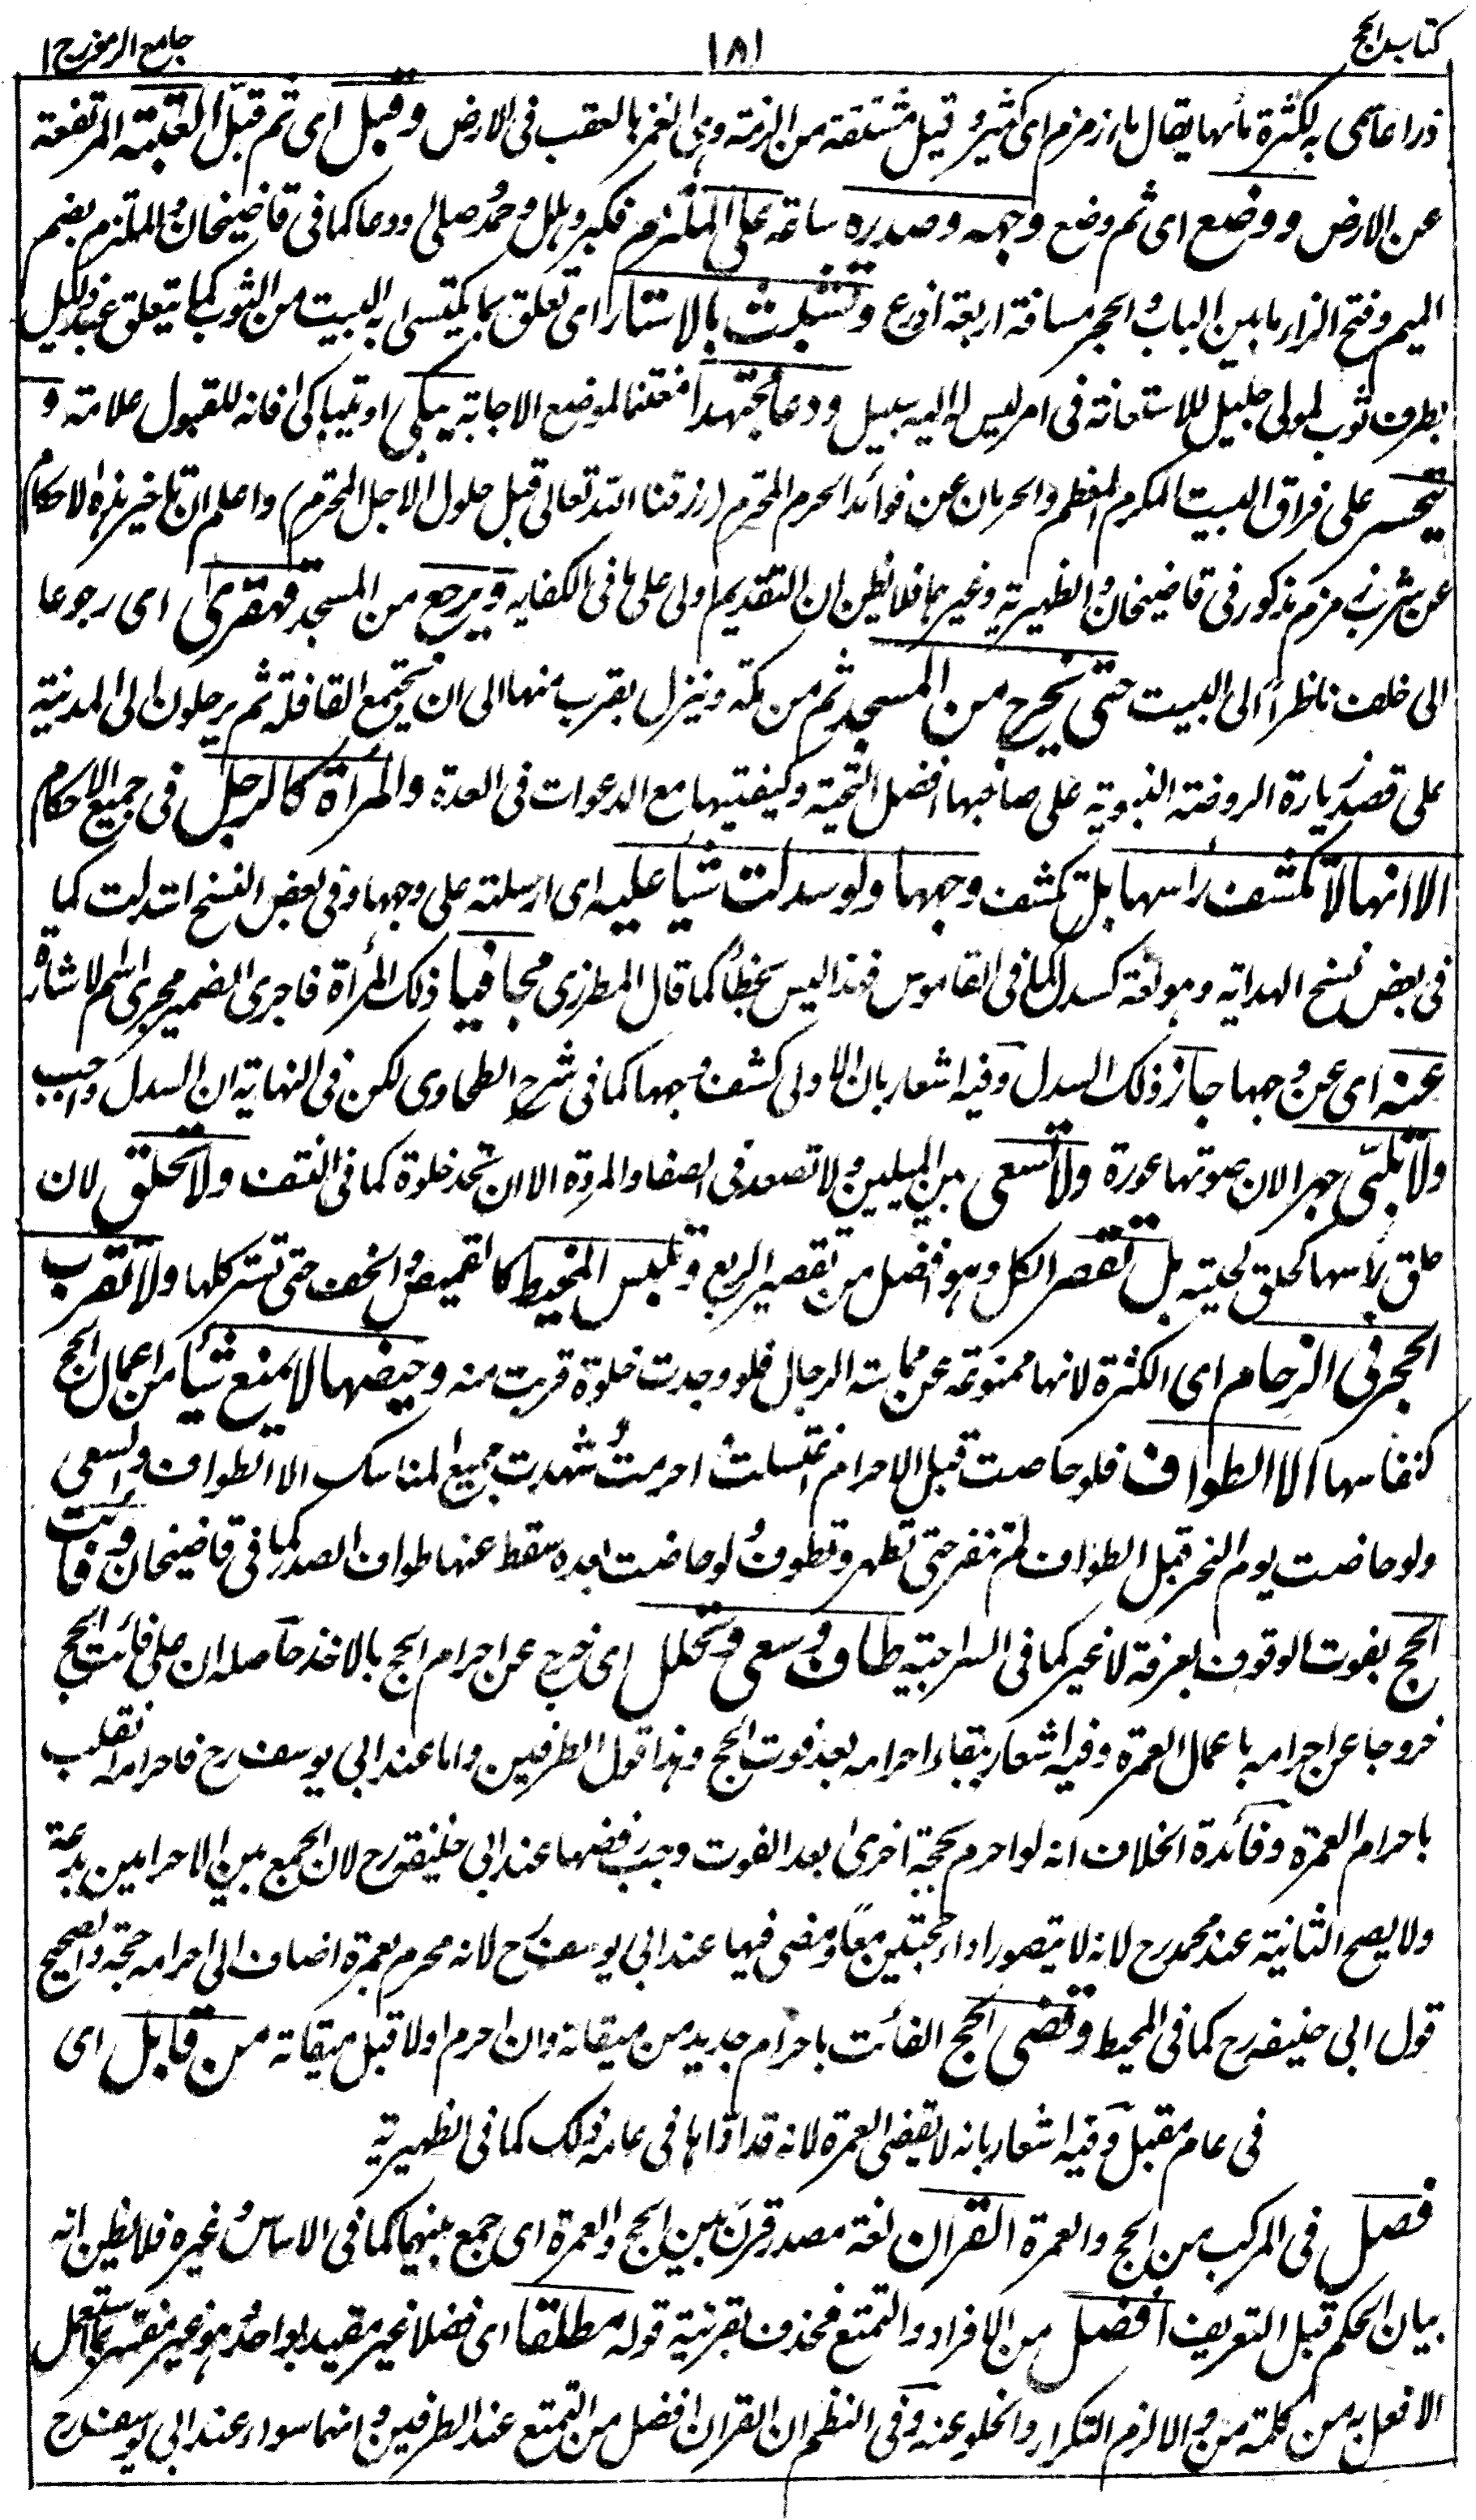 كتاب الحج ١٨١ جامع الرموز ج ١
ذراعا سمى به لكثرة مائها يقال ماء زمزم اى كثير وقيل مشتقة من الزمة وهى الغمز بالعقب فى الارض وقبل اى ثم قبل العتبة المرتفعة
عن الارض ووضع اى ثم وضع وجهه وصدره ساقه على الملتزم فكبر وهلل وحمد وصلى ودعا كما فى قاضيخان والملتزم بضم
الميم وفتح الزاء ما بين الباب والحجر مسافة اربعة اذرع وتشبث بالاستار اى تعلق بما يكتسى به البيت من الثوب كما يتعلق عبد ذليل
بطرف ثوب لمولى جليل للاستعانة فى امر ليس له اليه سبيل ودعا مجتهدا مغتنما لموضع الاجابة يبكى او يتباكى فانه للقبول علامة و
يتحسر على فراق البيت المكرم المعظم والحرمان عن فوائد الحرم المحترم (رزقنا الله تعالى قبل حلول الاجل المحترم) واعلم ان تاخير هذه الاحكام
عن شرب زمزم مذكور فى قاضيخان والظهيرية وغيرهما فلا يظن ان التقديم اولى على ما فى الكفاية ويرجع من المسجد قهقرى اى رجوعا
الى خلف ناظرا الى البيت حتى يخرج من المسجد ثم من مكة وينزل بقرب منها الى ان يجتمع القافلة ثم يرحلون الى المدينة
على قصد زيارة الروضة النبوية على صاحبها افضل التحية وكيفيتها مع الدعوات فى العدة والمرأة كالرجل فى جميع الاحكام
الا انها لا تكشف راسها بل تكشف وجهها ولو سدلت شيأ عليه اى ارسلته على وجهها وفى بعض النسخ اسدلت كما
فى بعض نسخ الهداية وهو لغة كسدل كما فى القاموس فهذا ليس بخطأ كما قال المطرزى مجافيا ذلك المرأة فاجرى الضمير مجرى اسم الاشارة
عنه اى عن وجهها جاز ذلك السدل وفيه اشعار بان الاولى كشف وجهها كما فى شرح الطحاوى لكن فى النهاية ان السدل واجب
ولا تلبى جهرا لان صوتها عورة ولا تسعى بين الميلين ولا تصعد فى الصفا والمروة الا ان تجد خلوة كما فى النتف ولا تحلق لان
حلق رأسها كحلق لحيته بل تقصر الكل وهو افضل من تقصير الربع وتلبس المخيط كالقميص والخف حتى تستر كلها ولا تقرب
الحجر فى الزحام اى الكثرة لانها ممنوعة عن مماسة الرجال فلو وجدت خلوة قربت منه وحيضها لا يمنع شيأ من اعمال الحج
كنفاسها الا الطواف فلو حاضت قبل الاحرام اغتسلت واحرمت وشهدت جميع المناسك الا الطواف والسعى
ولو حاضت يوم النحر قبل الطواف لم تنفر حتى تطهر وتطوف ولو حاضت بعده سقط عنها طواف الصدر كما فى قاضيخان وفائت
الحج بفوت الوقوف بعرفة لا غير كما فى السراجية طاف وسعى وتحلل اى خرج عن احرام الحج بالاخذ حاصله ان على فائت الحج
خروجا عن احرامه باعمال العمرة وفيه اشعار ببقاء احرامه بعد فوت الحج وهذا قول الطرفين واما عند ابى يوسف رح فاحرامه انقلب
باحرام العمرة وفائدة الخلاف انه لو احرم بحجة اخرى بعد الفوت وجب رفضها عند ابى حنيفة رح لان الجمع بين الاحرامين بدعة
ولا يصح الثانية عند محمد رح لانه لا يتصور اداء حجتين معا ومضى فيها عند ابى يوسف رح لانه محرم بعمرة اضاف الى احرامه حجة والصحيح
قول ابى حنيفة رح كما فى المحيط وقضى الحج الفائت باحرام جديد من ميقاته وان احرم اولا قبل ميقاته من قابل اى
فى عام مقبل وفيه اشعار بانه لا يقضى العمرة لانه قد اداها فى عامه ذلك كما فى الظهيرية
فصل فى المركب من الحج والعمرة القران لغة مصدر قرن بين الحج والعمرة اى جمع بينهما كما فى الاساس وغيره فلا يظن انه
بيان الحكم قبل التعريف افضل من الافراد والتمتع فحذف بقرينة قوله مطلقا اى فضلا غير مقيد بواحد وهو غير مفتقر بما استعمل
الافعل به من كلمة من والا لزم التكرار والخلو عنه وفى النظم ان القران افضل من التمتع عند الطرفين وانهما سواء عند ابى يوسف رح